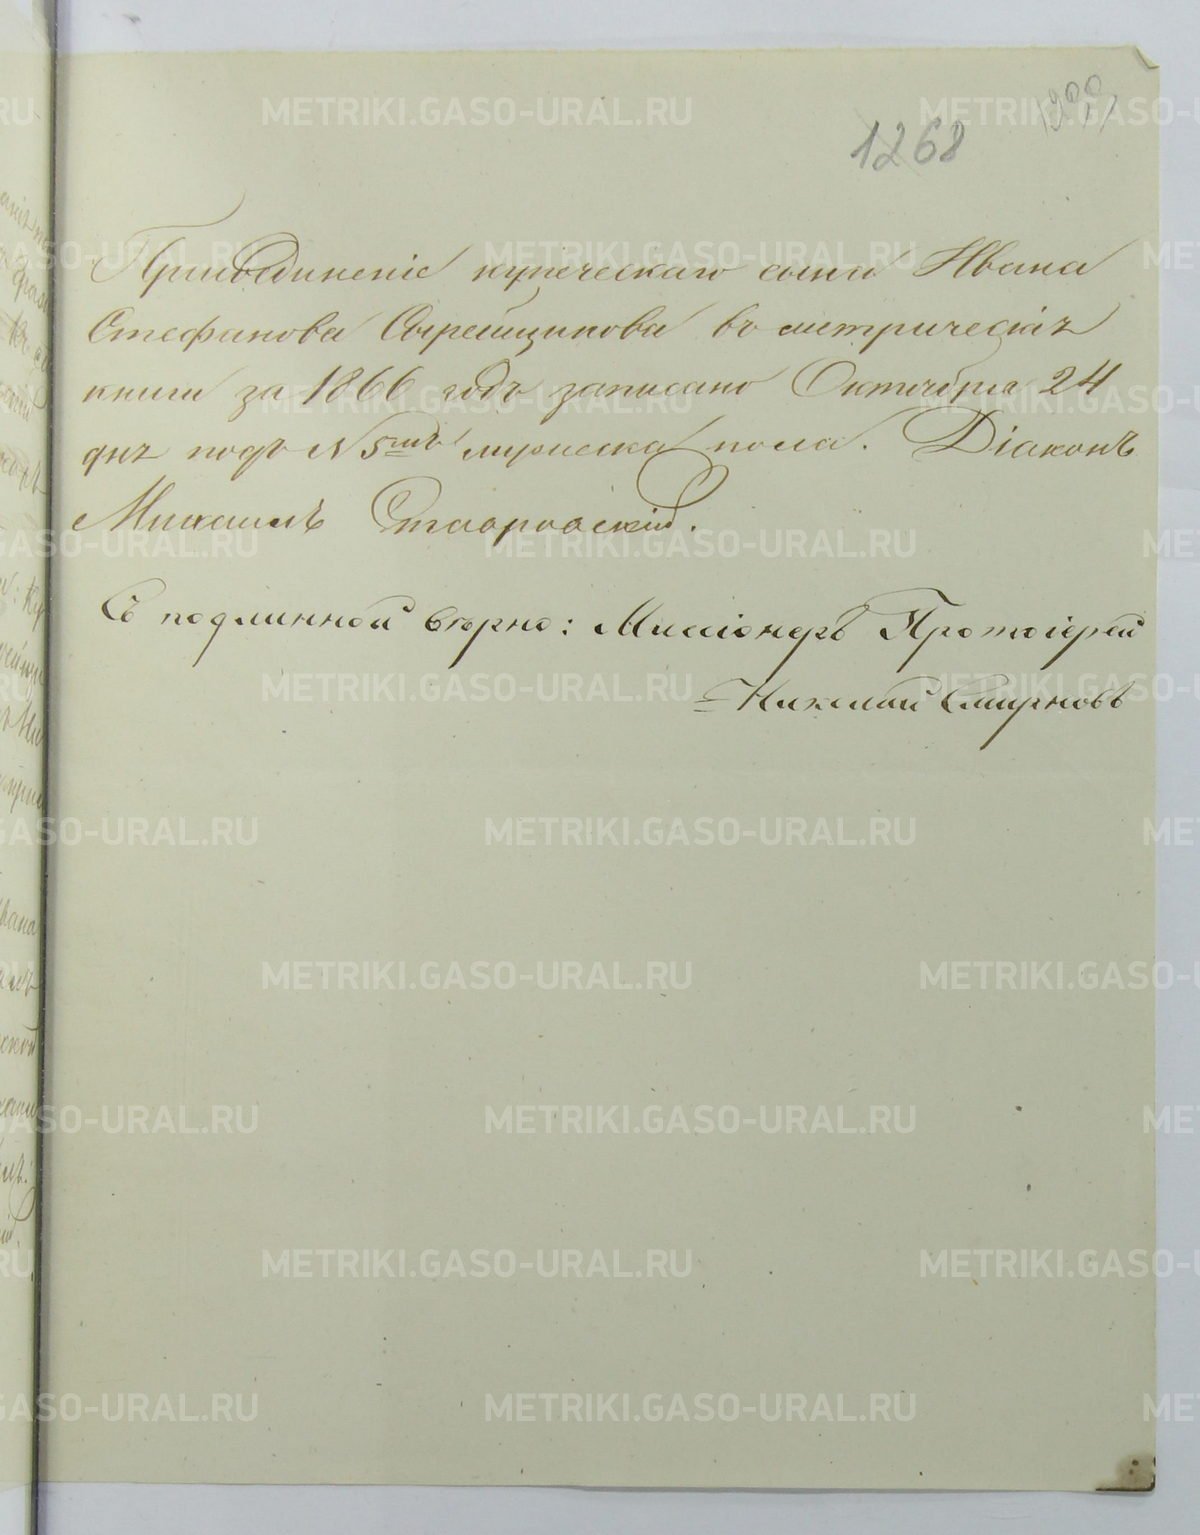 1268
Присоединеніе купеческаго сына Ивана
Стефанова Сырейщикова въ метрическіх
книги за 1866 годъ записано Октября 24
дня подъ N 5мъ мужеска пола. Діаконъ
Михаилъ Ставровскій.
Съ подлинной вѣрно: Миссіонеръ Протоіерей
Николай Смирновъ
METRIKI.GASO-URAL.RU